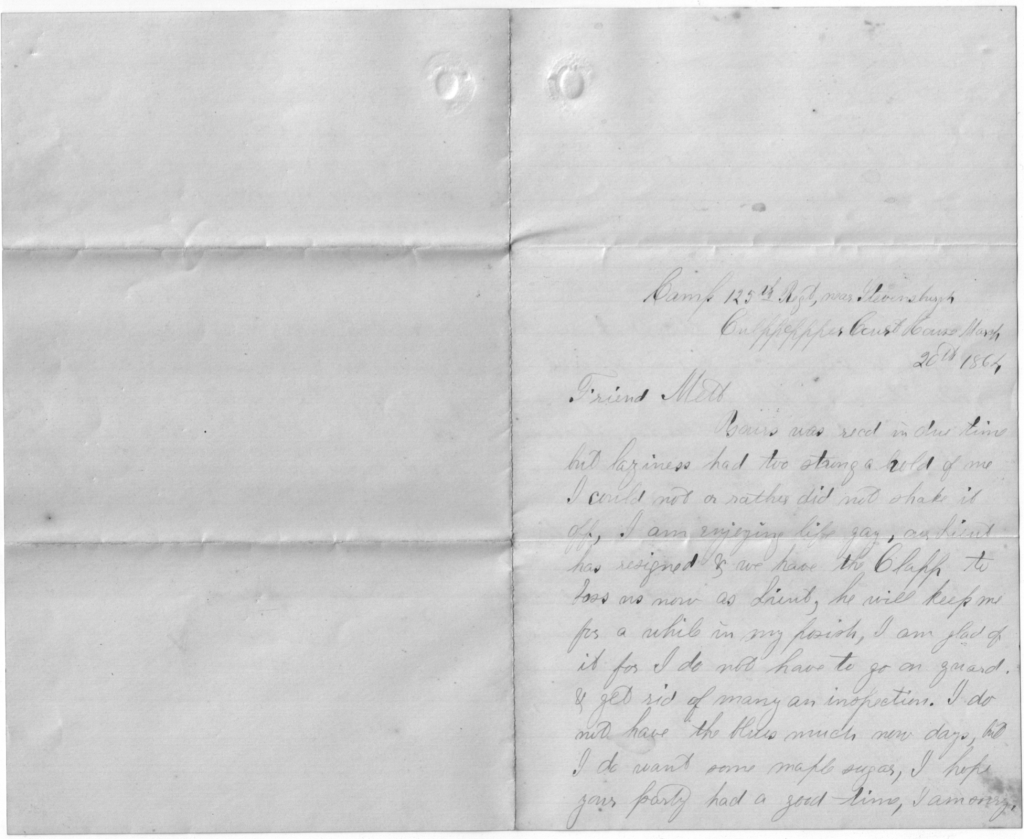 Camp 125th Regt, near Stevensburgh
Court House March
20th 1864,
Friend Mett
Yours was recd in due time
but laziness had too strong a hold of me
I could not or rather did not shake it
off, I am enjoying life gay, our Lieut
has resigned & we have the Clapp to
boss us now as Lieut, he will keep me
for a while in my posish, I am glad of
it for I do not have to go on guard.
& get rid of many an inspection. I do
not have the blues much now days, but
I do want some maple sugar, I hope
your party had a good time, I am